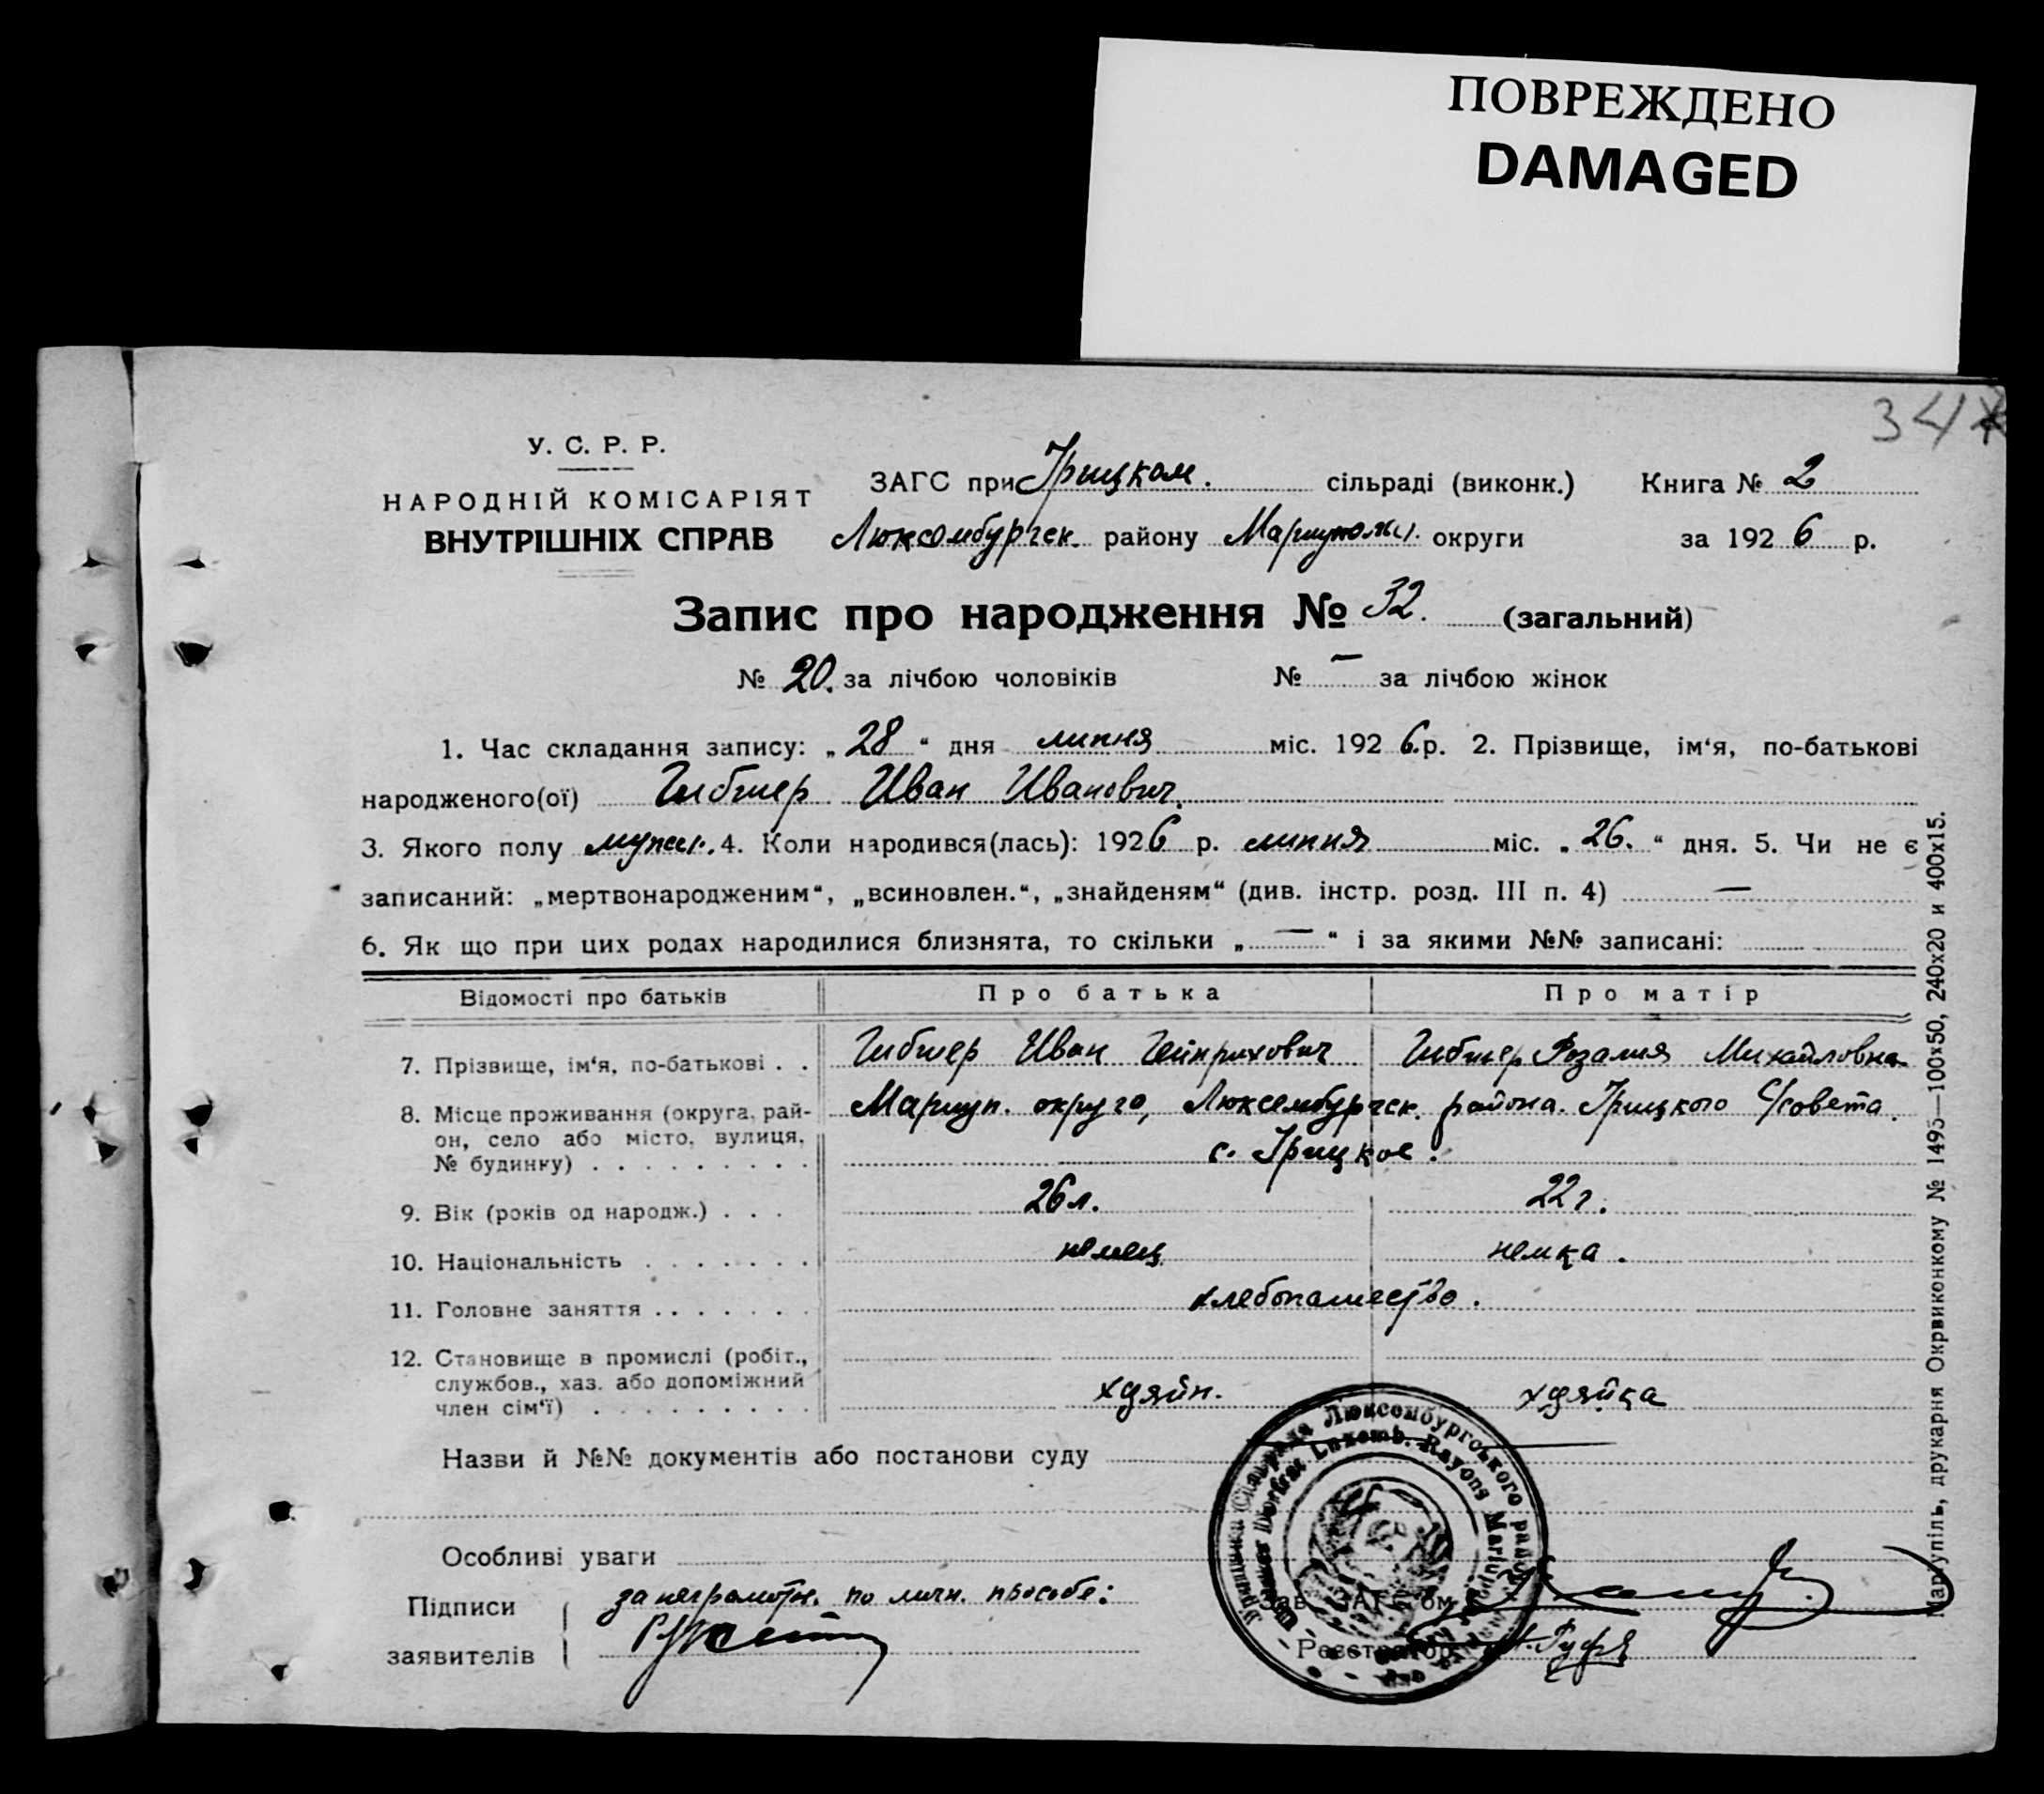 ПОВРЕЖДЕНО
DAMAGED
34
У. С. Р. Р.
НАРОДНІЙ КОМІСАРІЯТ
ВНУТРІШНІХ СПРАВ
ЗАГС при Грицком. сільраді (виконк.) Книга № 2
Люксембургск. району Мариупольс. округи за 1926 р.
Запис про народження № 32. (загальний)
№ 20. за лічбою чоловіків № — за лічбою жінок
1. Час складання запису: „28“ дня липня міс. 1926.р. 2. Прізвище, ім‘я, по-батькові
народженого(ої) Гибнер Иван Иванович.
3. Якого полу мужск. 4. Коли народився(лась): 1926 р. липня міс. „26.“ дня. 5. Чи не є
записаний: „мертвонародженим“, „всиновлен.“, „знайденям“ (див. інстр. розд. III п. 4) —
6. Як що при цих родах народилися близнята, то скільки „—“ і за якими №№ записані:
Відомості про батьків Про батька Про матір
7. Прізвище, ім‘я, по-батькові . . Гибнер Иван Гейнрихович Гибнер Розалия Михайловна
8. Місце проживання (округа, рай- Мариуп. округа, Люксембургск. района. Грицкого С/совета.
он, село або місто, вулиця,
№ будинку) . . . . . . . . . с. Грицкое.
9. Вік (років од народж.) . . . 26 л. 22 г.
10. Національність . . . . . . . немец немка.
11. Головне заняття . . . . . . . хлебопашество.
12. Становище в промислі (робіт.,
службов., хаз. або допоміжний
член сім‘ї) . . . . . . . . . хозяин. хозяйка
Назви й №№ документів або постанови суду
Особливі уваги
Підписи за неграмотн. по личн. просьбе:
заявителів
Зав. ЗАГС‘ом
Реєстратор
Сільрада Люксембургського району
Dorfrat Luxemb. Rayons Mariupol
Маріупіль, друкарня Окрвиконкому № 1495—100х50, 240х20 и 400х15.